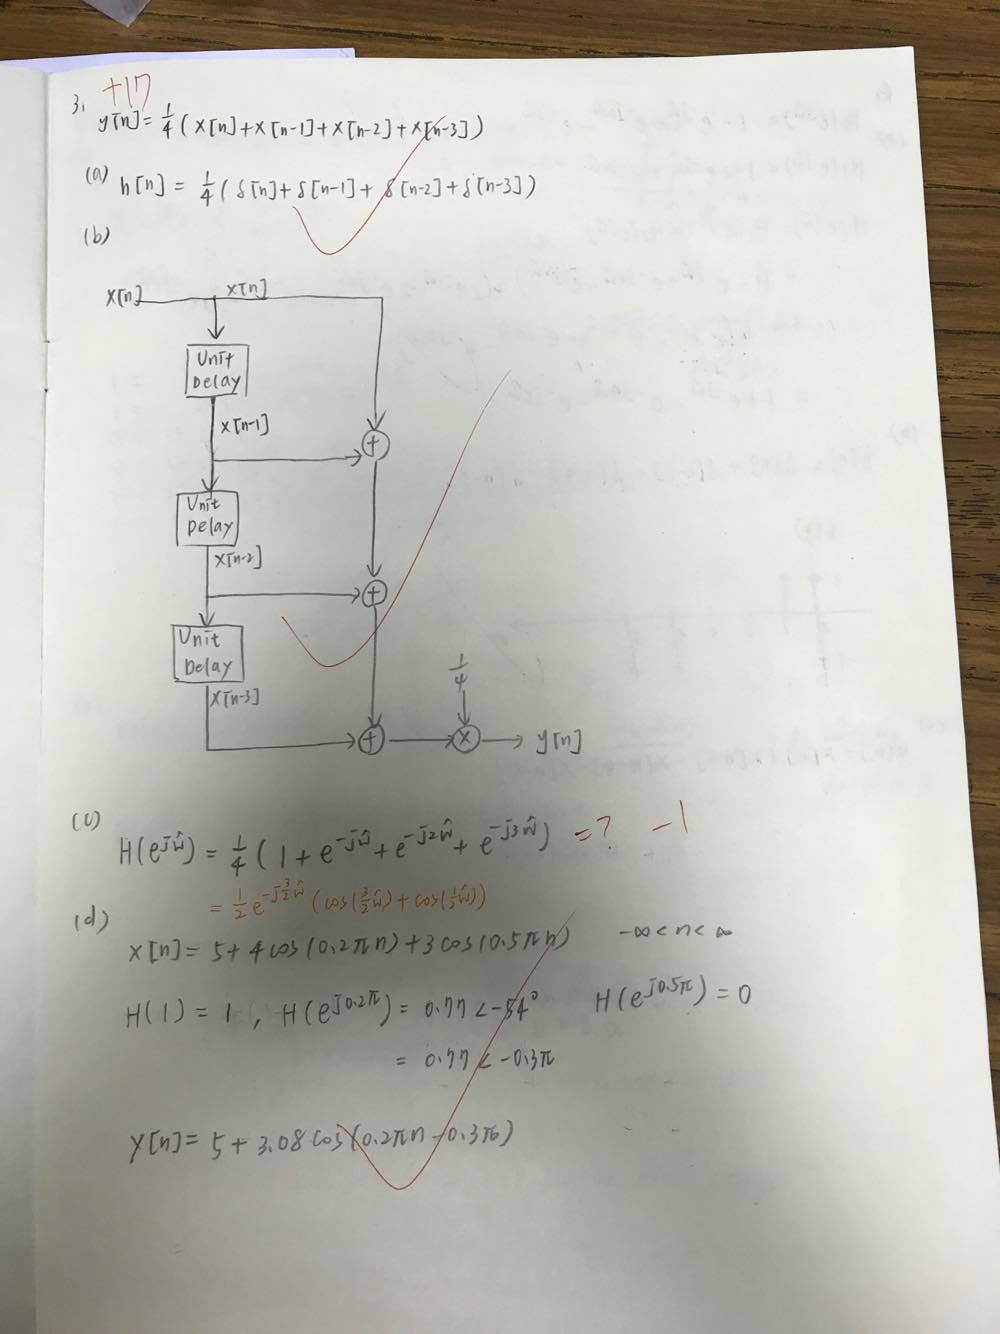 +17
3.
y[n]=1/4(x[n]+x[n-1]+x[n-2]+x[n-3])
(a) h[n] = 1/4(δ[n]+δ[n-1]+δ[n-2]+δ[n-3])
(b)
x[n] x[n]
Unit
Delay
x[n-1]
+
Unit
Delay
x[n-2]
+
Unit
Delay
x[n-3]
1/4
+ × y[n]
(c)
H(e^jŵ) = 1/4(1+e^-jŵ+e^-j2ŵ+e^-j3ŵ) =? -1
= 1/2 e^-j3/2ŵ (cos(3/2ŵ)+cos(1/2ŵ))
(d)
x[n] = 5+4cos(0.2πn)+3cos(0.5πn) -∞<n<∞
H(1) = 1, H(e^j0.2π) = 0.77∠-54° H(e^j0.5π) = 0
= 0.77∠-0.3π
y[n] = 5+3.08cos(0.2πn-0.3π)